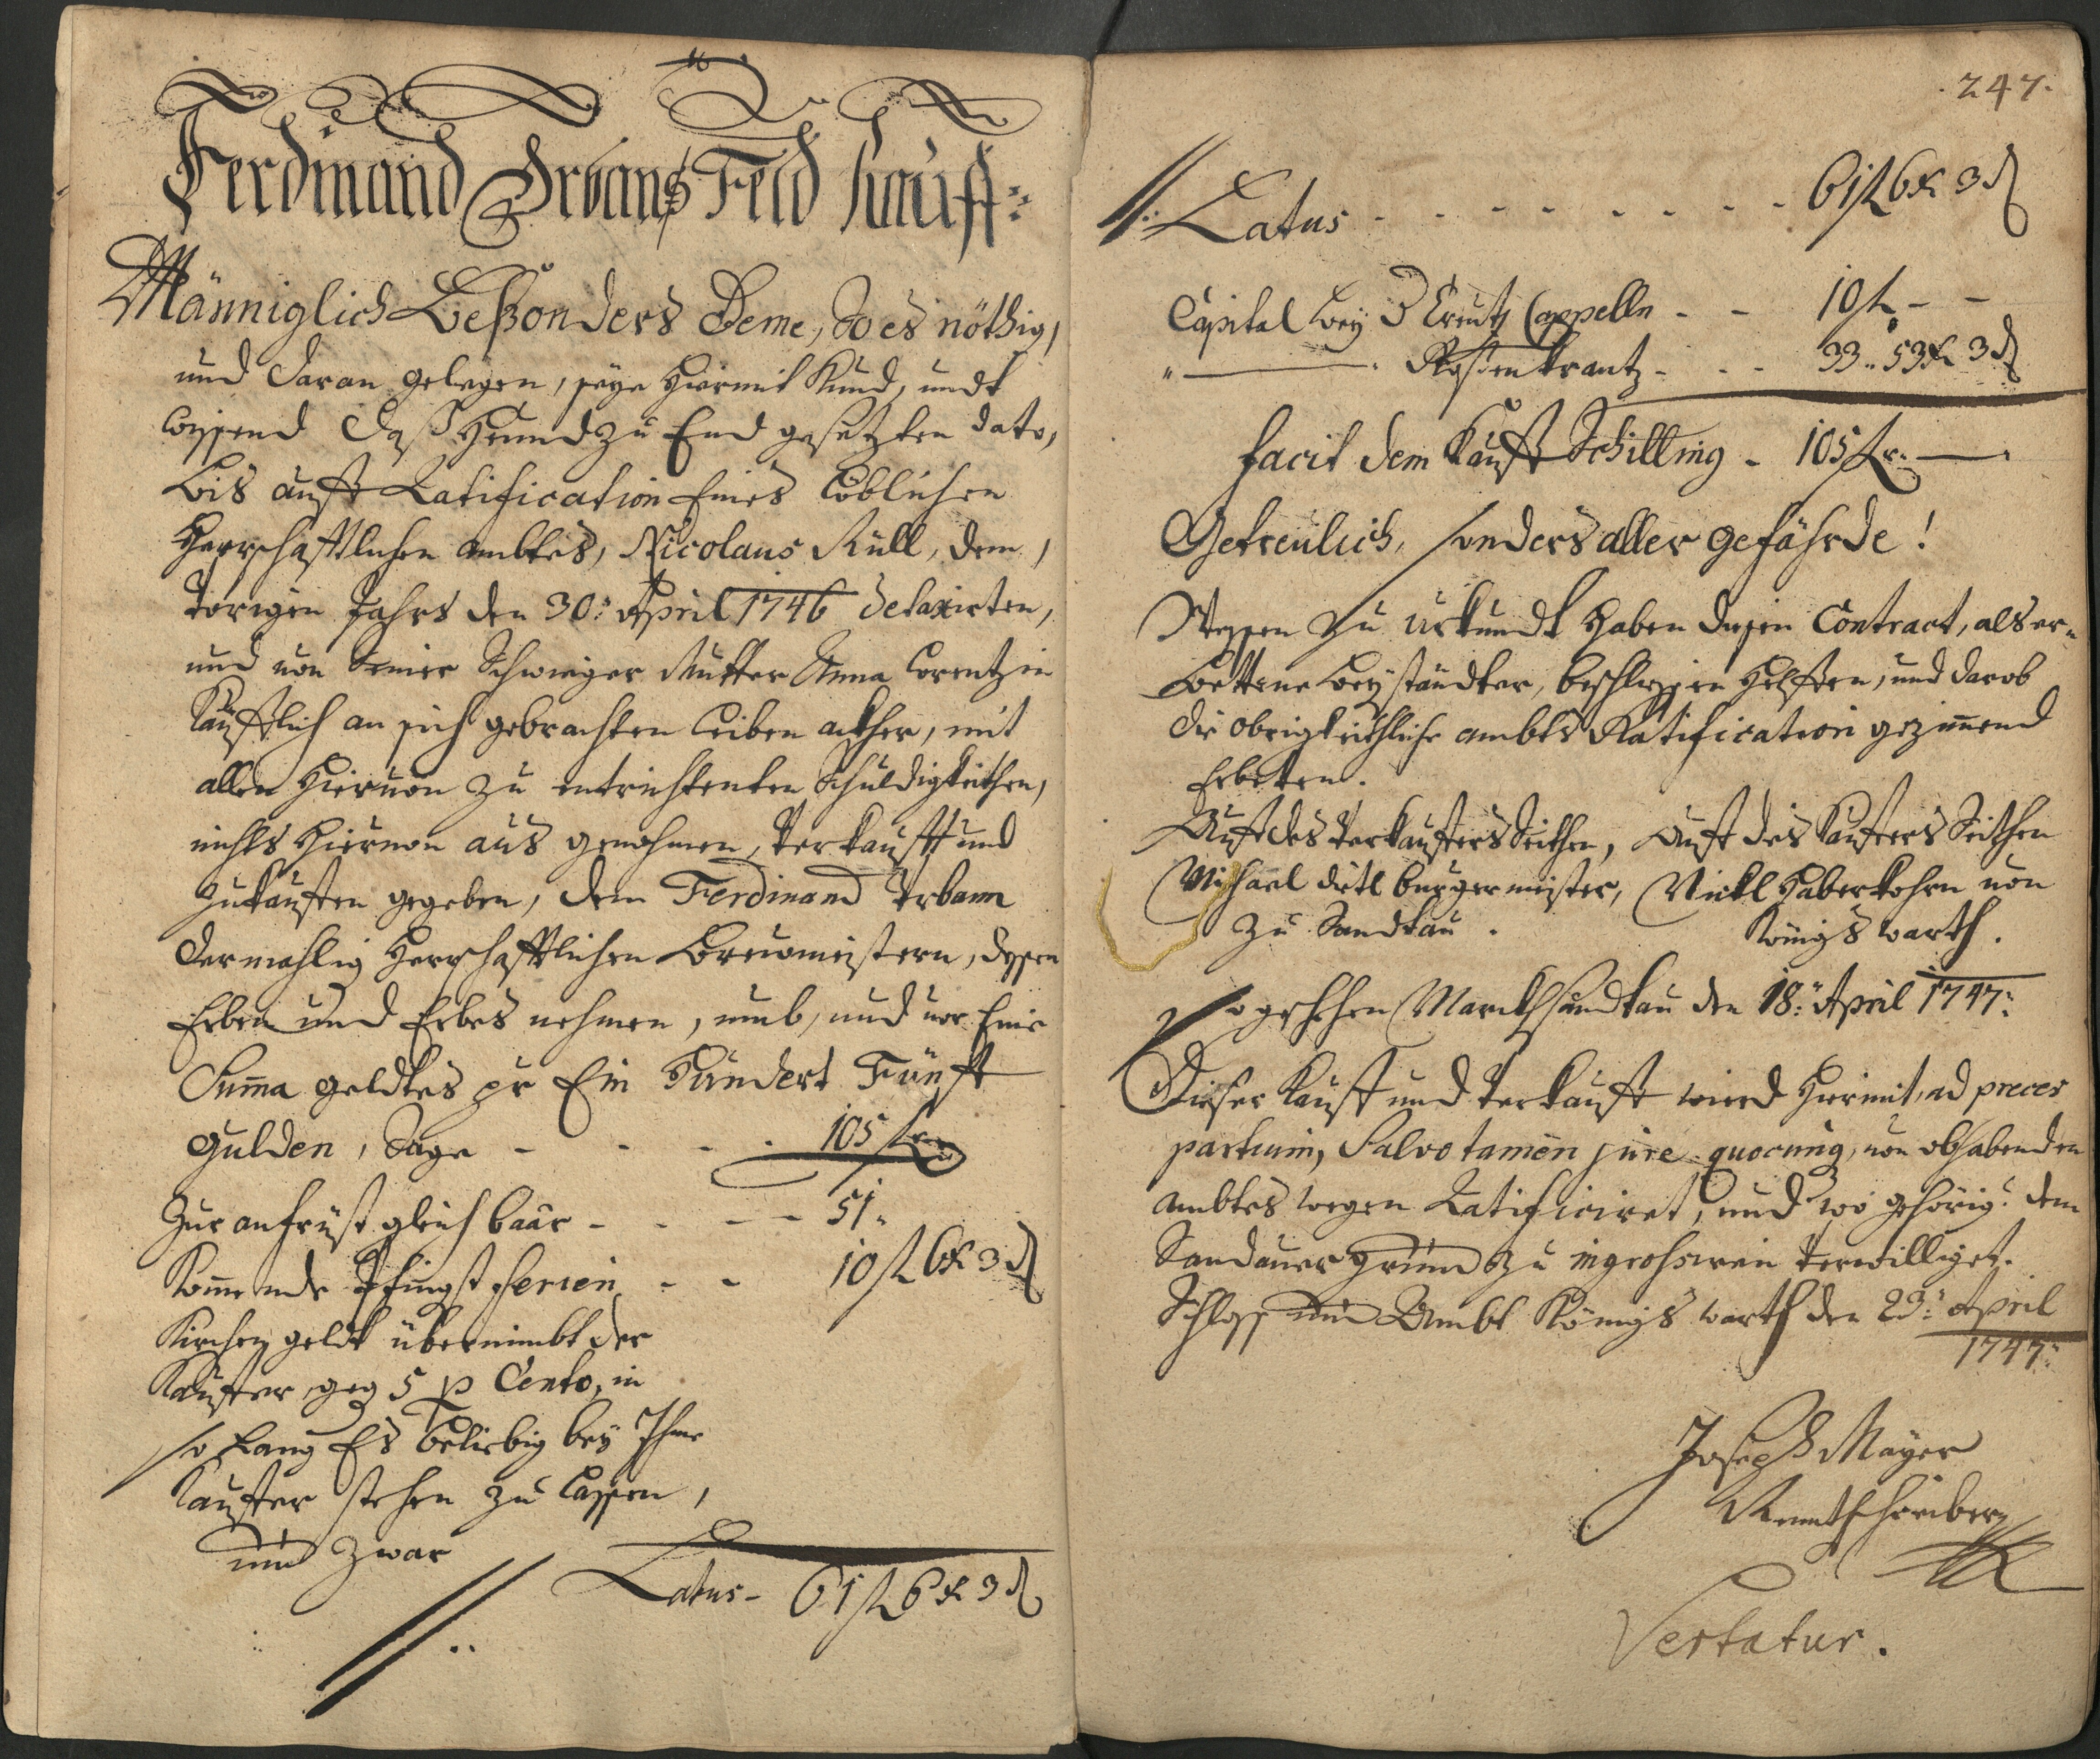 Ferdinand Urbans Feld Kauff:
Männiglich Beßonders Deme, So es nöthig,
und daran gelegen, seye hiermit Kund, undt
wissend daß Heund zu End gesetzten dato,
bis auff Ratification Eines löblichen
Herrschafftlichen ambtes, Nicolaus Rüll, dem,
Vorigen Jahrs den 30: April 1746 detaxirten,
und von Seiner Schwieger Mutter Anna Lorentzin
Käufflich an sich gebrachten Leiben ackher, mit
allen hiervon zu entrichtenten Schuldigkeithen,
nichts hiervon aus genohmen, Verkaufft und
zukauffen gegeben, dem Ferdinand Urbann
dermahlig Herrschafftlichen Breumeistern, dessen
Erben und Erbes nehmen, umb, und vor Eine
Summa geldtes pr Ein Hundert Fünff
gulden, Sage - - - 105 fl:
Zur anfrist gleich baar - - - 51:
Komende Pfingst ferien - - 10 fl 6 x 3 d
Kirchen geldt übernimbt der
Kauffer geg 5 p Cento, in
so Lang Es beliebig bey Ihme
Kauffer stehen zu lassen,
und zwar
Latus - 61 fl 6 x 3 d
247.
Latus - - - - - - - - 61 fl 6 x 3 d
Capital bey d Creutz Cappelln - - 10 fl - -
" ——— " Roßenkrantz - - - 33 .. 53 x 3 d
facit dem Kauff Schilling - 105 fl: —
Getreulich, sonders aller gefährde!
Wessen zu urkundt haben diesen Contract, als er=
bettene beyständter, beschlissen helffen, und darob
die obrigkeithliche ambts Ratification gezimmend
Erbetten.
Auff des Verkauffers Seithen, Auff des Kauffers Seithen
Michael dietl burgermeister, Nickl Haberkohrn von
zu Sandtau. Königs warth.
So geschehen Marckh Sandtau den 18: April 1747:
Dieser Kauff und Verkauff wird hiermit, ad preces
partium, Salvo tamen jure quocunq, von obhabenden
ambtes wegen Ratificiret, und wo gehörig: dem
Sandauer grund zu ingrossiren verwilliget.
Schloss und Ambt Königs warth den 29: April
1747:
Joseph Mayer
Rentschreiber
Vertatur.